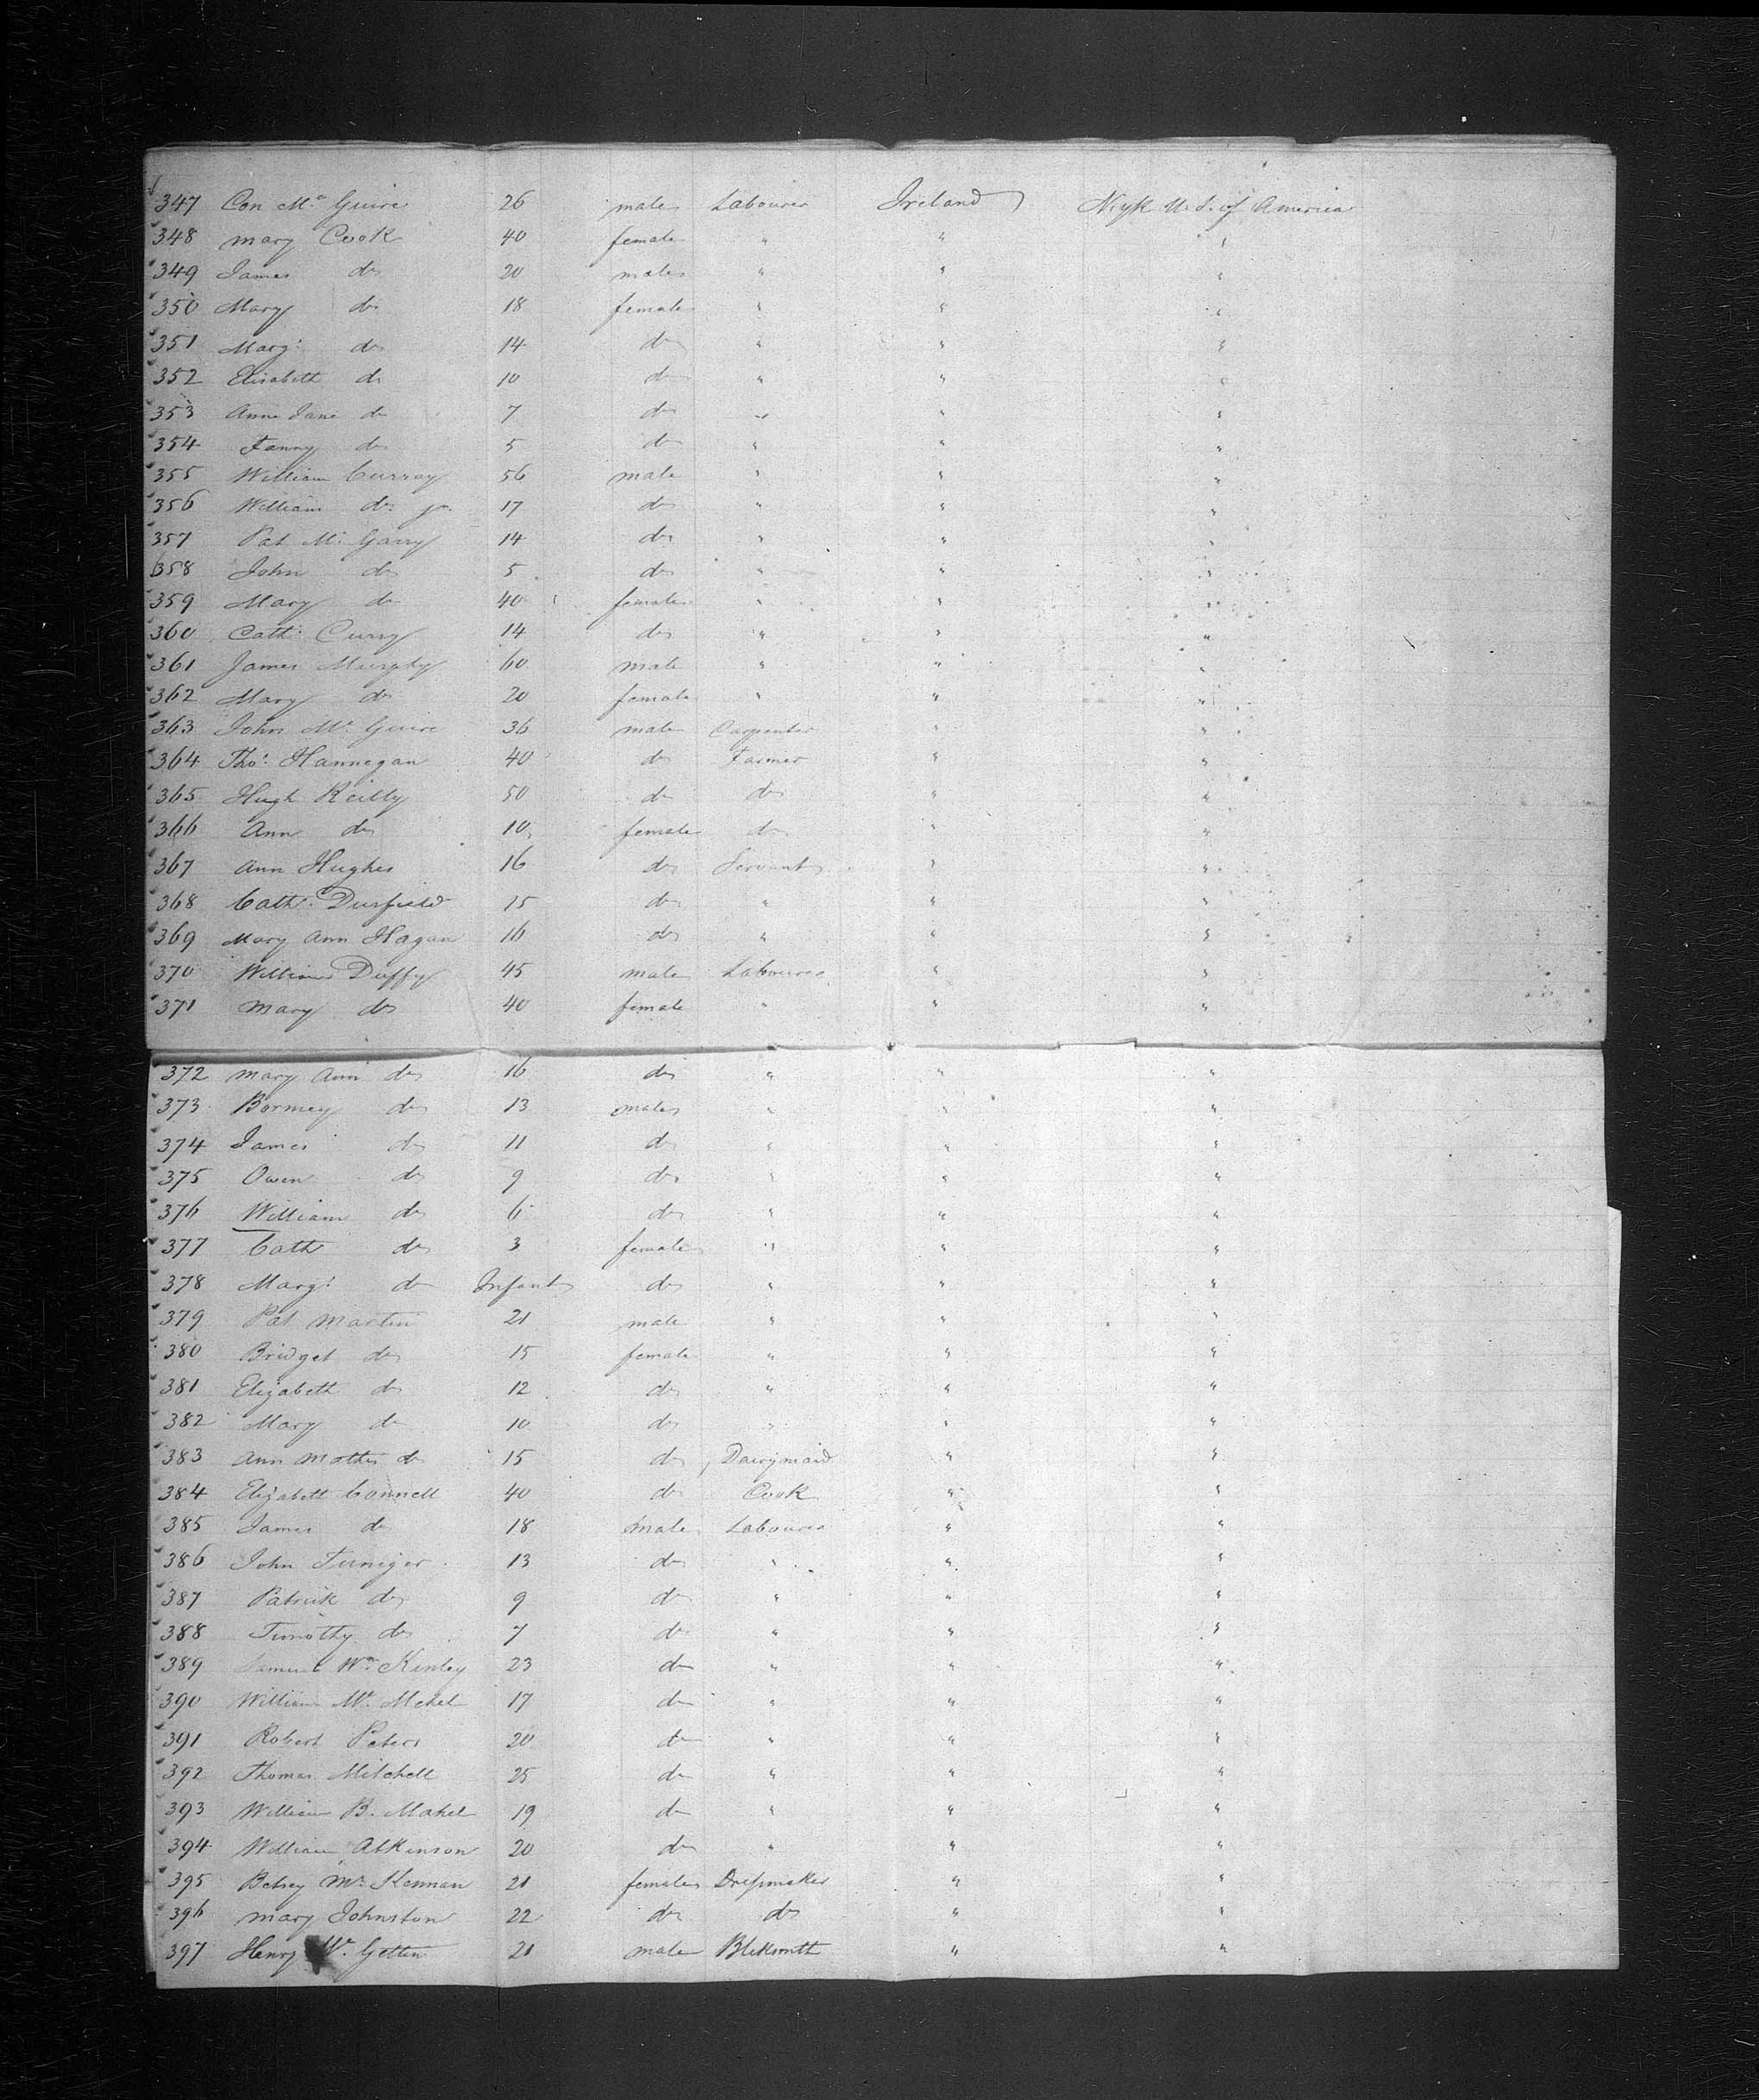 347 Con Mc Guire 26 male Labourer Ireland N.yk U.S. of America
348 Mary Cook 40 female " " "
349 James do 20 male " " "
350 Mary do 18 female " " "
351 Margt do 14 do " " "
352 Elisabeth do 10 do " " "
353 Anne Jane do 7 do " " "
354 Fanny do 5 do " " "
355 William Curray 56 male " " "
356 William do jr. 17 do " " "
357 Pat Mc Garry 14 do " " "
358 John do 5 do " " "
359 Mary do 40 female " " "
360 Cath. Curry 14 do " " "
361 James Murphy 60 male " " "
362 Mary do 20 female " " "
363 John Mc Guire 36 male Carpenter " "
364 Thos. Hannegan 40 do Farmer " "
365 Hugh Reilly 50 do do " "
366 Ann do 10 female do " "
367 Ann Hughes 16 do Servant " "
368 Cath. Durfield 15 do " " "
369 Mary Ann Hagan 16 do " " "
370 William Duffy 45 male Labourer " "
371 Mary do 40 female " " "
372 Mary Ann do 16 do " " "
373 Borney do 13 male " " "
374 James do 11 do " " "
375 Owen do 9 do " " "
376 William do 6 do " " "
377 Cath do 3 female " " "
378 Margt do Infant do " " "
379 Pat Martin 21 male " " "
380 Bridget do 15 female " " "
381 Elizabeth do 12 do " " "
382 Mary do 10 do " " "
383 Ann do 15 do Dairymaid " "
384 Elizabeth Connell 40 do Cook " "
385 James do 18 male Labourer " "
386 John 13 do " " "
387 Patrick do 9 do " " "
388 Timothy do 7 do " " "
389 Samuel Mc Kinley 23 do " " "
390 William Mc 17 do " " "
391 Robert Peters 20 do " " "
392 Thomas Mitchell 25 do " " "
393 William B. Mahel 19 do " " "
394 William Atkinson 20 do " " "
395 Betsey Mc Kennan 21 female Dressmaker " "
396 Mary Johnston 22 do do " "
397 Henry Mc Getten 21 male Blcksmith " "